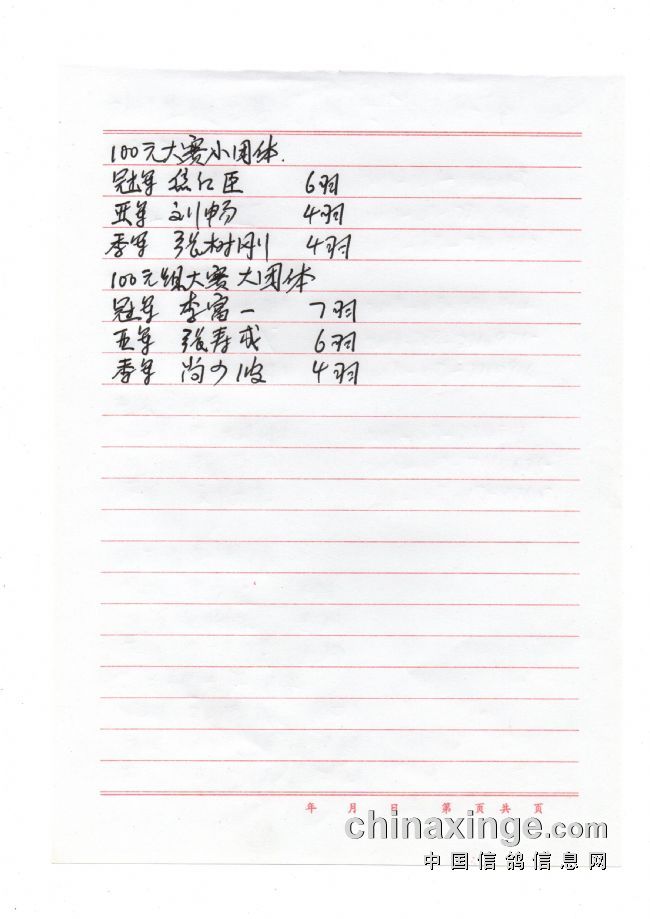 100元大赛小团体.
冠军 仁臣 6羽
亚军 刘畅 4羽
季军 张树刚 4羽
100元组大赛 大团体
冠军 李富一 7羽
亚军 张寿成 6羽
季军 尚少波 4羽
年 月 日 第 页 共 页
chinaxinge.com
中国信鸽信息网